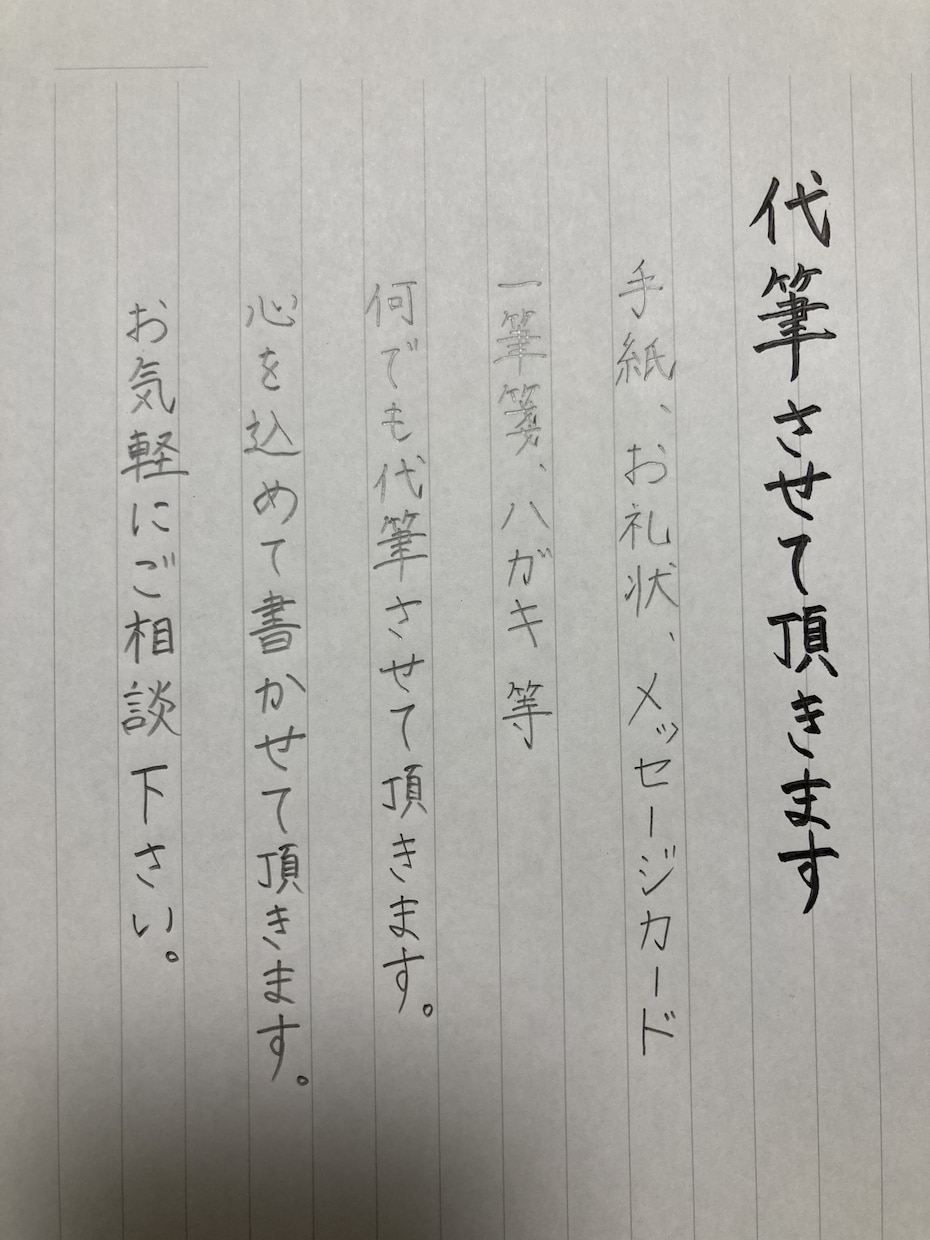 代筆させて頂きます
手紙、お礼状、メッセージカード
一筆箋、ハガキ等
何でも代筆させて頂きます。
心を込めて書かせて頂きます。
お気軽にご相談下さい。